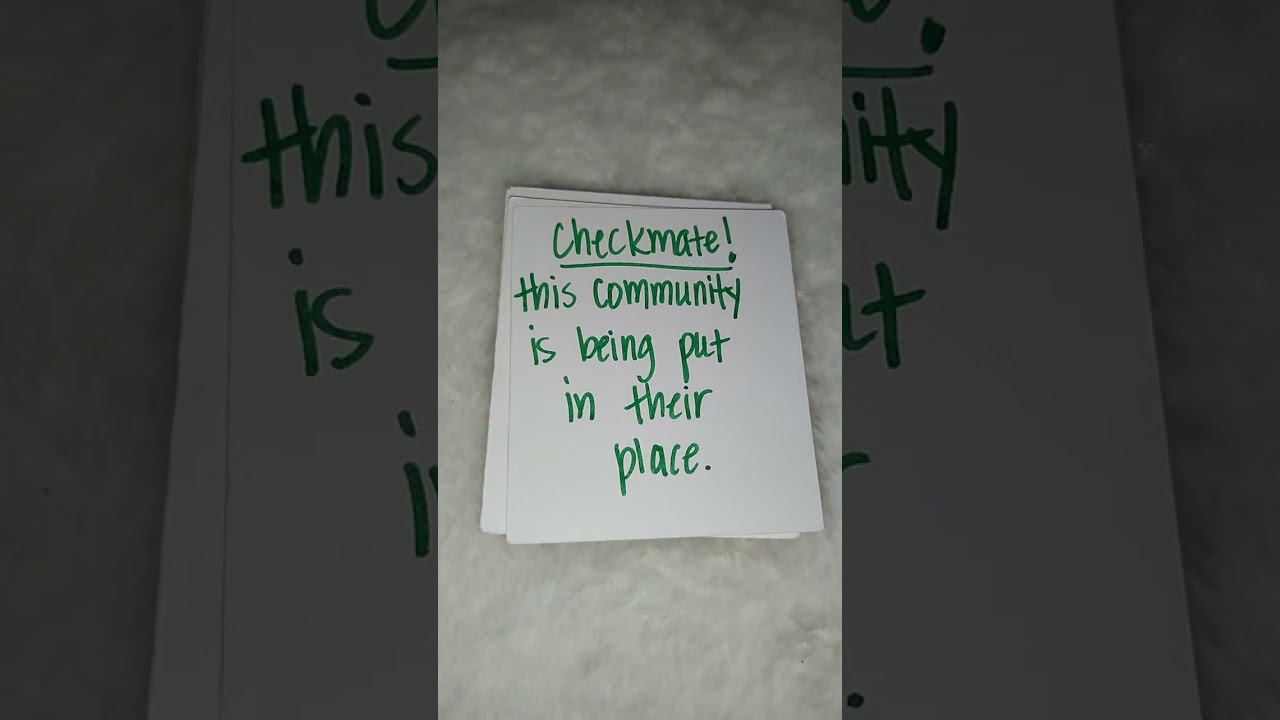 Checkmate!
this community
is being put
in their
place.